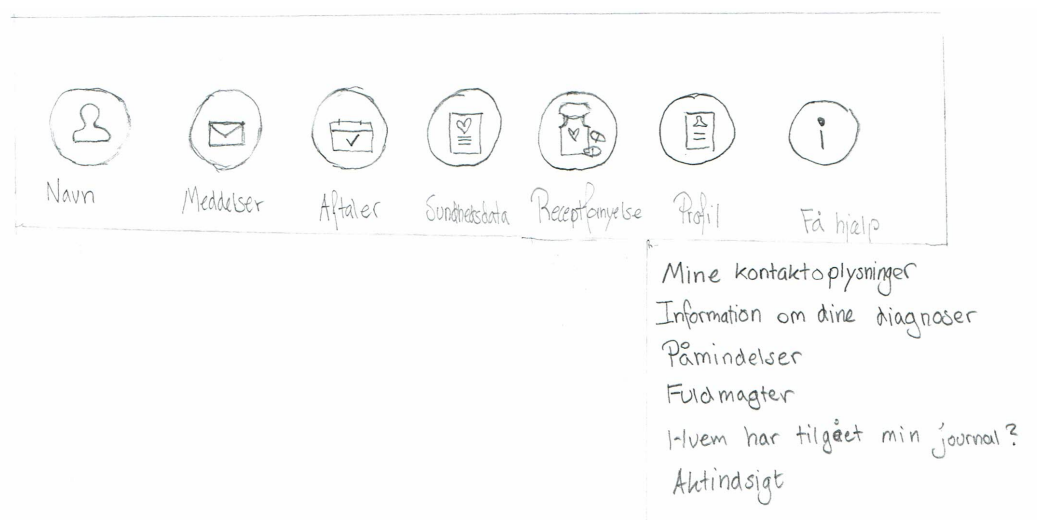 Navn
Meddelser
Aftaler
Sundhedsdata
Receptfornyelse
Profil
Få hjælp
Mine kontaktoplysninger
Information om dine diagnoser
Påmindelser
Fuldmagter
Hvem har tilgået min journal?
Aktindsigt